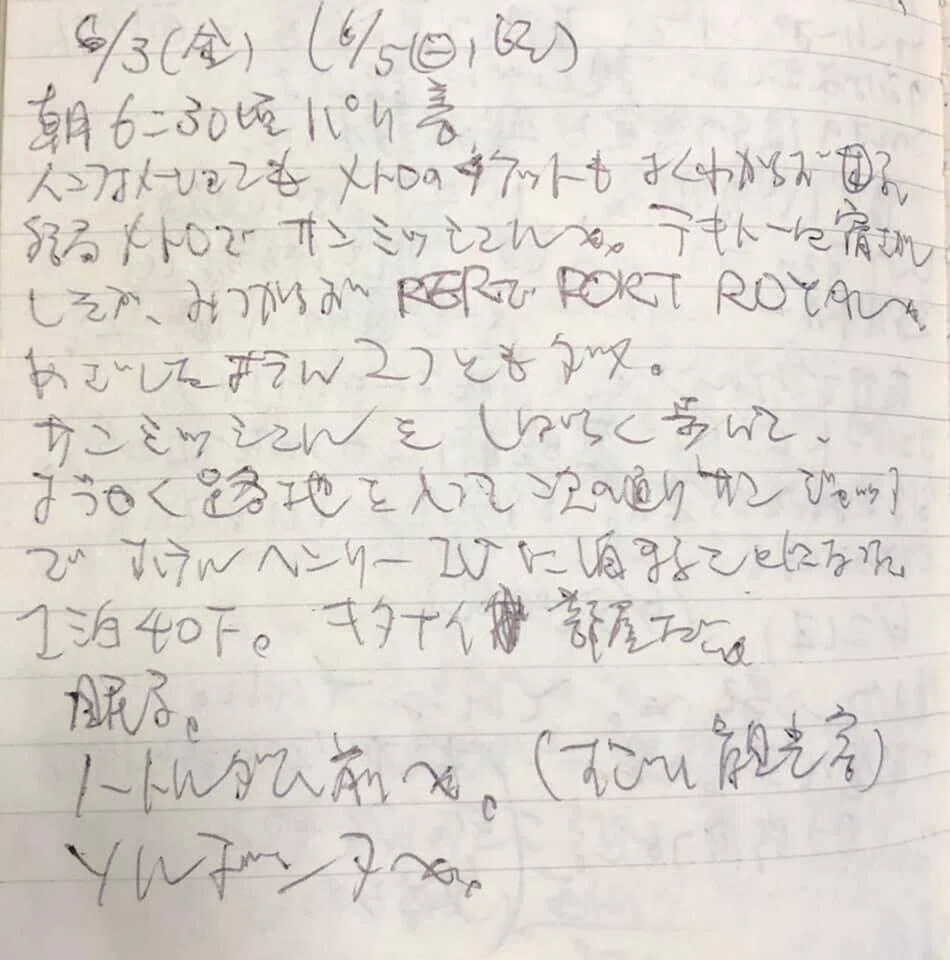 6/3(金) (6/5(日)記)
朝6:30頃パリ着
インフォメーションでもメトロのチケットもよくわからず困る。
結局メトロでサンミッシェルへ。テキトーに宿さがし
しるが、みつからず RERで PORT ROYALへ
めざしたホテル2つともダメ。
サンミッシェルをしばらく歩いて、
ようやく路地を入って次の通りサンジャック
でホテルヘンリーⅣに泊まることになる。
1泊40F。キタナイ部屋だ。
眠る。
ノートルダム前へ。(すごい観光客)
ソルボンヌへ。